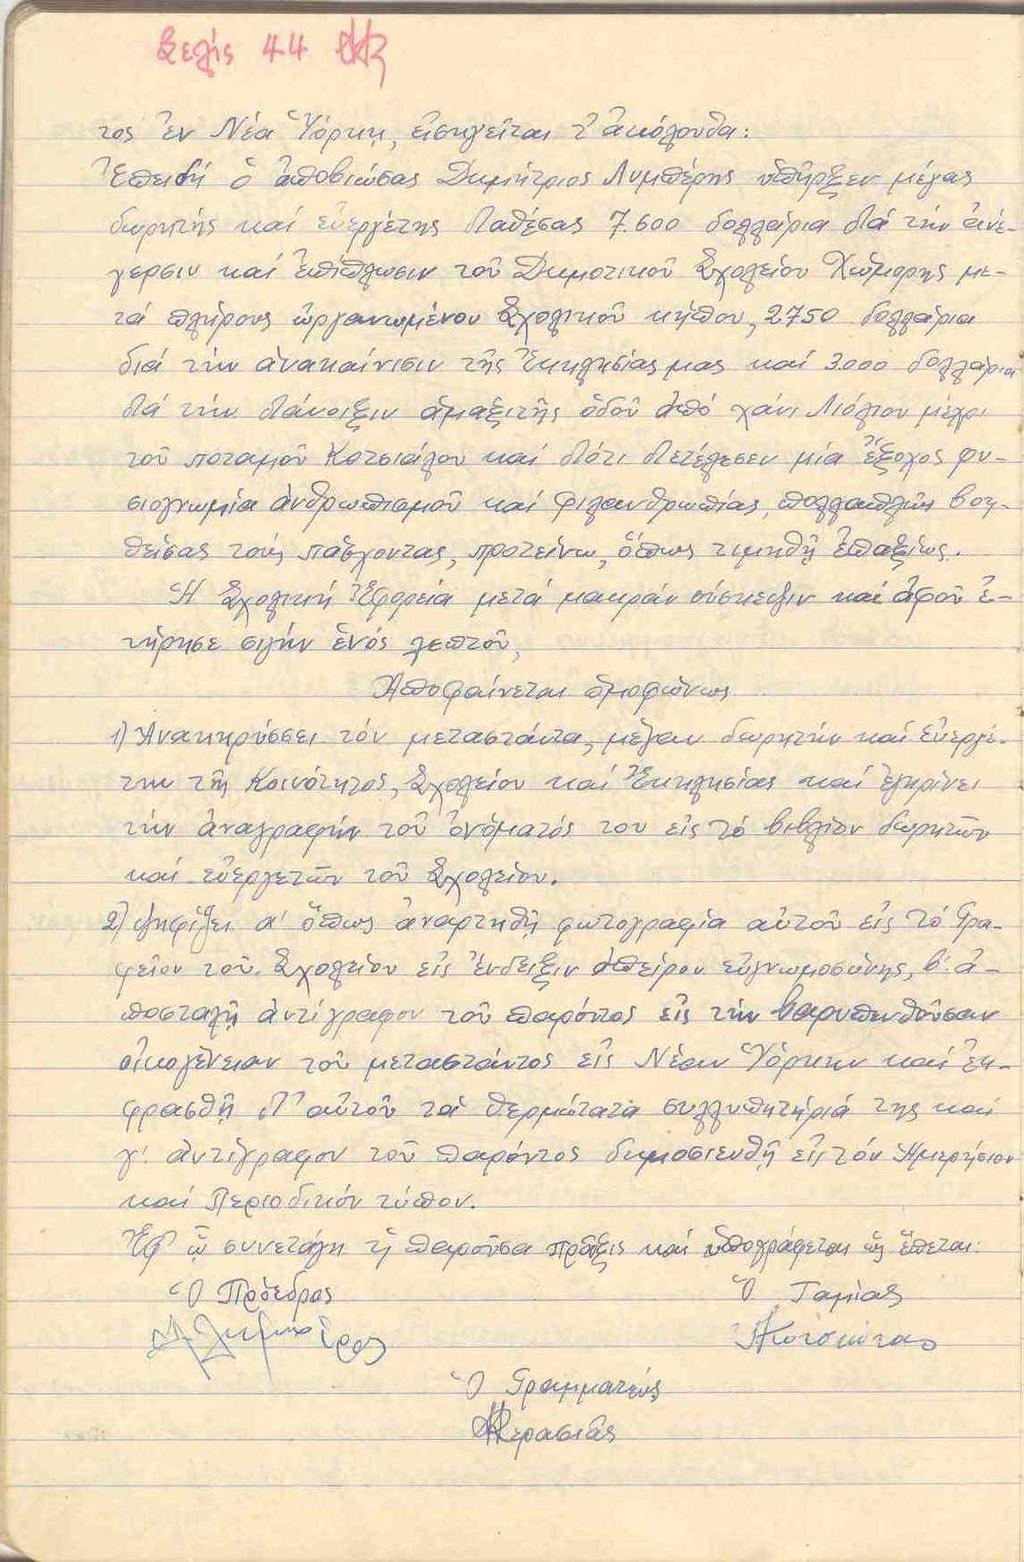 Σελίς 44
τος ἐν Νέα Ὑόρκῃ, εἰσηγεῖται τ' ἀκόλουθα:
Ἐπειδή ὁ ἀποβιώσας Δημήτριος Λυμπέρης ὑπῆρξεν μέγας
δωρητής καί εὐεργέτης διαθέσας 7.600 δολλάρια διά τήν ἀνέ-
γερσιν καί ἐπίπλωσιν τοῦ Δημοτικοῦ Σχολείου Χώμορης με-
τά πλήρους ὠργανωμένου Σχολικοῦ κήπου, 2750 δολλάρια
διά τήν ἀνακαίνισιν τῆς Ἐκκλησίας μας καί 3.000 δολλάρια
διά τήν διάνοιξιν ἁμαξιτῆς ὁδοῦ ἀπό χάνι Λιόλιου μέχρι
τοῦ ποταμοῦ Κοτσιάλου καί διότι διετέλεσεν μία ἔξοχος φυ-
σιογνωμία ἀνθρωπισμοῦ καί φιλανθρωπίας, πολλαπλῶς βοη-
θείσας τούς πάσχοντας, προτείνω, ὅπως τιμηθῇ ἐπαξίως.
Ἡ Σχολική Ἐφορεία μετά μακράν σύσκεψιν καί ἀφοῦ ἐ-
τήρησε σιγήν ἑνός λεπτοῦ,
Ἀποφαίνεται ὁμοφώνως
1) Ἀνακηρύσσει τόν μεταστάντα, μέγαν δωρητήν καί Εὐεργέ-
την τῆς Κοινότητος, Σχολείου καί Ἐκκλησίας καί ἐγκρίνει
τήν ἀναγραφήν τοῦ ὀνόματός του εἰς τό βιβλίον δωρητῶν
καί εὐεργετῶν τοῦ Σχολείου.
2) Ψηφίζει α' ὅπως ἀναρτηθῇ φωτογραφία αὐτοῦ εἰς τό Γρα-
φεῖον τοῦ Σχολείου εἰς ἔνδειξιν ἀπείρου εὐγνωμοσύνης, β'. ἀ-
ποσταλῇ ἀντίγραφον τοῦ παρόντος εἰς τήν βαρυπενθοῦσαν
οἰκογένειαν τοῦ μεταστάντος εἰς Νέαν Ὑόρκην καί ἐκ-
φρασθῇ δι' αὐτοῦ τά θερμότατα συλλυπητήριά της καί
γ'. ἀντίγραφον τοῦ παρόντος δημοσιευθῇ εἰς τόν Ἡμερήσιον
καί Περιοδικόν τύπον.
Ἐφ' ᾧ συνετάγη ἡ παροῦσα πρᾶξις καί ὑπογράφεται ὡς ἕπεται:
Ὁ Πρόεδρος Ὁ Ταμίας
Ὁ Γραμματεύς